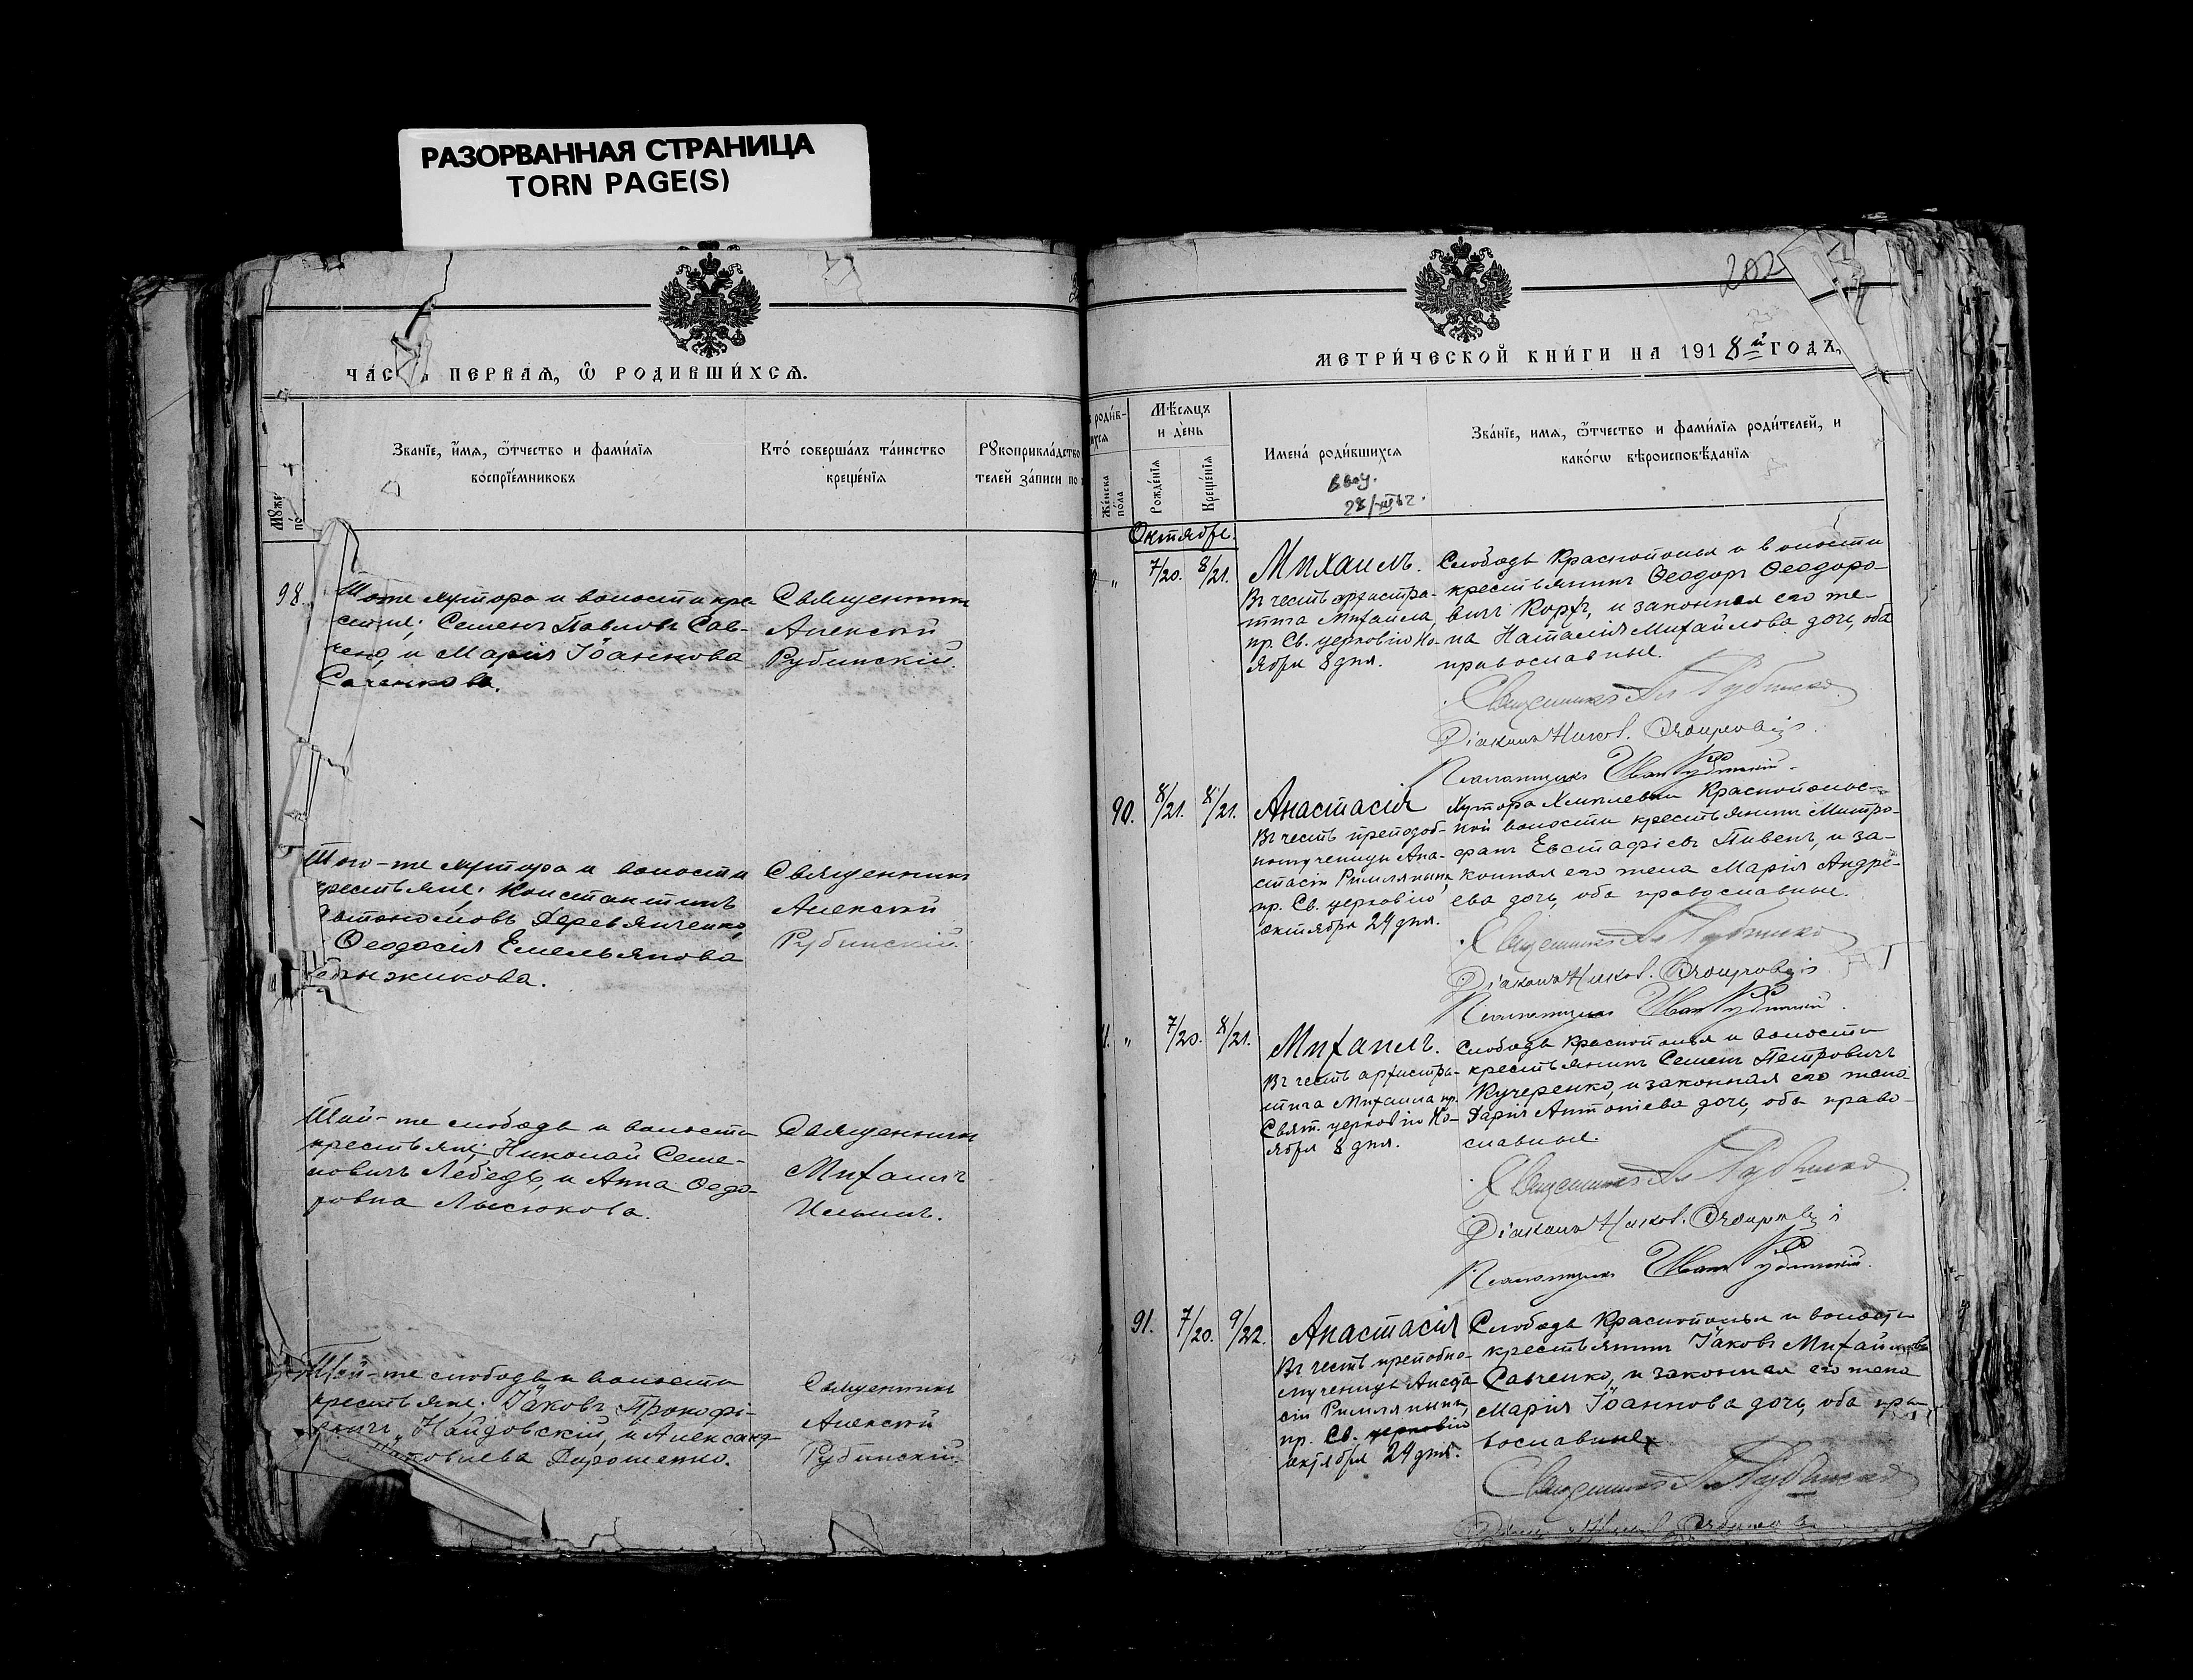 РАЗОРВАННАЯ СТРАНИЦА
TORN PAGE(S)
ЧАСТЬ ПЕРВАѦ, Ѽ РОДИВШИ́ХСѦ.
Зва́нїе, и҆́мѧ, ѻ҆́тчество и фами́лїѧ
воспрїе́мниковъ
Кто́ соверша́лъ та́инство
креще́нїѧ
Рꙋкоприкла́дство
телей за́писи по
98.
Того же хутора и волости кре
стьяне; Семенъ Павловъ Сав-
ченко, и Марія Іоаннова
Савченкова.
Священникъ
Алексѣй
Рубинскій.
Того-же хутора и волости
крестьяне; Константинъ
Деревянченко,
Ѳеодосія Емельянова
Священникъ
Алексѣй
Рубинскій.
Той-же слободы и волости
крестьяне; Николай Семе-
новичъ Лебедь, и Анна Ѳедо-
ровна Лысюкова.
Священникъ
Михаилъ
Ильинъ.
Той-же слободы и волости
крестьяне: Іаковъ Прокофі-
евичъ Найдовскій, и Александ
Дорошенко.
Священникъ
Алексѣй
Рубинскій.
202
МЕТРИ́ЧЕСКОЙ КНИ́ГИ НА 1918й ГОДЪ,
роди́в-
Же́нска
по́ла
Мѣ́сѧцъ
и де́нь
Рожде́нїѧ
Креще́нїѧ
Имена́ роди́вшихсѧ
Зва́нїе, имѧ, ѻ҆́тчество и фами́лїѧ роди́телей, и
како́гѡ вѣроисповѣ́данїѧ
Октябрь.
" 7/20. 8/21.
Михаилъ.
Въ честь архистра-
тига Михаила,
пр. Св. церковію Но-
ября 8 дня.
Слободы Краснополья и волости
крестьянинъ Ѳеодоръ Ѳеодоро-
вичъ Коржъ, и законная его же-
на Наталія Михайлова дочь, оба
православные.
Священникъ Ал Рубинскій
Діаконъ Никол.
Псаломщикъ Иванъ Рубинскій.
90. 8/21. 8/21.
Анастасія
Въ честь преподоб-
номученицы Ана-
стасіи Римляныни,
пр. Св. церковію
октября 29 дня.
Хутора Хмилевки Краснополь-
ской волости крестьянинъ Митро-
фанъ Евстафіевъ Пивень, и за-
конная его жена Марія Андре-
ева дочь, оба православные.
Священникъ Ал Рубинскій
Діаконъ Никол.
Псаломщикъ Иванъ Рубинскій.
" 7/20. 8/21.
Михаилъ.
Въ честь архистра-
тига Михаила пр.
Свят. церковію Но-
ября 8 дня.
Слободы Краснополья и волости
крестьянинъ Семенъ Петровичъ
Кучеренко, и законная его жена
Дарія Антоніева дочь, оба право-
славные.
Священникъ Ал Рубинскій
Діаконъ Никол.
Псаломщикъ Иванъ Рубинскій.
91. 7/20. 9/22.
Анастасія
Въ честь преподобно-
мученицы Анаста
сіи Римляныни,
пр. Св. церковію
октября 29 дня.
Слободы Краснополья и волости
крестьянинъ Іаковъ Михайловъ
Савченко, и законная его жена
Марія Іоаннова дочь, оба пра-
вославные.
Священникъ Ал Рубинскій